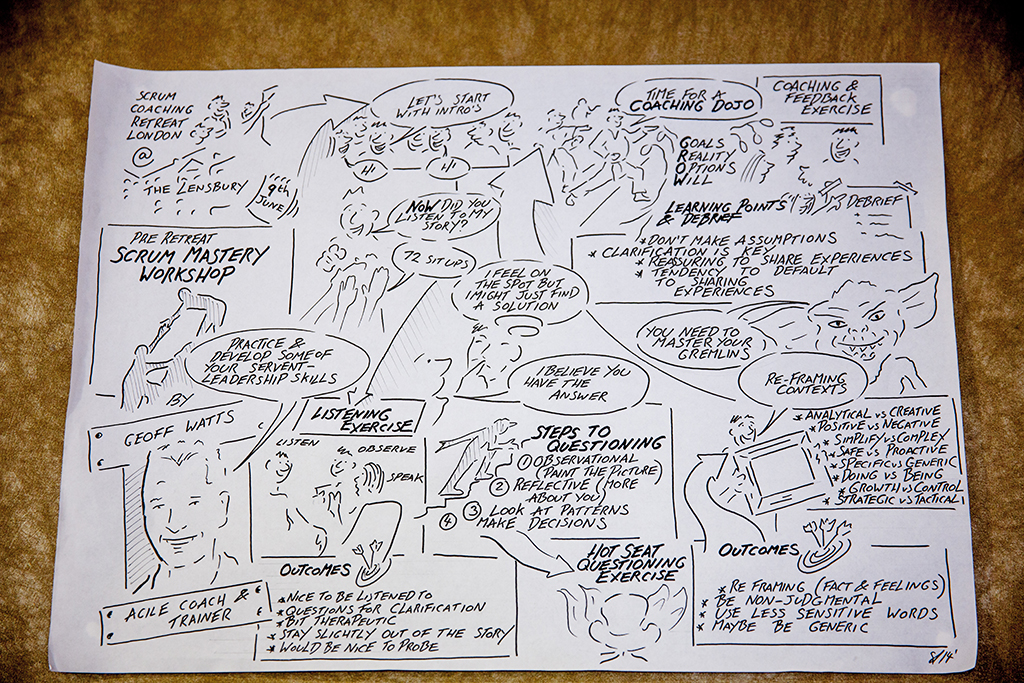 SCRUM
COACHING
RETREAT
LONDON
@
THE LENSBURY
9th
JUNE
LET'S START
WITH INTRO'S
HI
HI
TIME FOR A
COACHING DOJO
GOALS
REALITY
OPTIONS
WILL
COACHING &
FEEDBACK
EXERCISE
DEBRIEF
LEARNING POINTS
& DEBRIEF
* DON'T MAKE ASSUMPTIONS
* CLARIFICATION IS KEY
* REASSURING TO SHARE EXPERIENCES
* TENDENCY TO DEFAULT
TO SHARING
EXPERIENCES
PRE RETREAT
SCRUM MASTERY
WORKSHOP
BY
GEOFF WATTS
AGILE COACH &
TRAINER
PRACTICE &
DEVELOP SOME OF
YOUR SERVENT-
LEADERSHIP SKILLS
NOW DID YOU
LISTEN TO MY
STORY?
72 SITUPS
I FEEL ON
THE SPOT BUT
I MIGHT JUST FIND
A SOLUTION
I BELIEVE YOU
HAVE THE
ANSWER
YOU NEED TO
MASTER YOUR
GREMLINS
RE-FRAMING
CONTEXTS
LISTENING
EXERCISE
LISTEN
OBSERVE
SPEAK
OUTCOMES
* NICE TO BE LISTENED TO
* QUESTIONS FOR CLARIFICATION
* BIT THERAPEUTIC
* STAY SLIGHTLY OUT OF THE STORY
* WOULD BE NICE TO PROBE
STEPS TO
QUESTIONING
① OBSERVATIONAL
(PAINT THE PICTURE)
② REFLECTIVE (MORE
ABOUT YOU)
③ LOOK AT PATTERNS
④ MAKE DECISIONS
HOT SEAT
QUESTIONING
EXERCISE
* ANALYTICAL vs CREATIVE
* POSITIVE vs NEGATIVE
* SIMPLIFY vs COMPLEX
* SAFE vs PROACTIVE
* SPECIFIC vs GENERIC
* DOING vs BEING
* GROWTH vs CONTROL
* STRATEGIC vs TACTICAL
OUTCOMES
* RE FRAMING (FACT & FEELINGS)
* BE NON-JUDGMENTAL
* USE LESS SENSITIVE WORDS
* MAYBE BE GENERIC